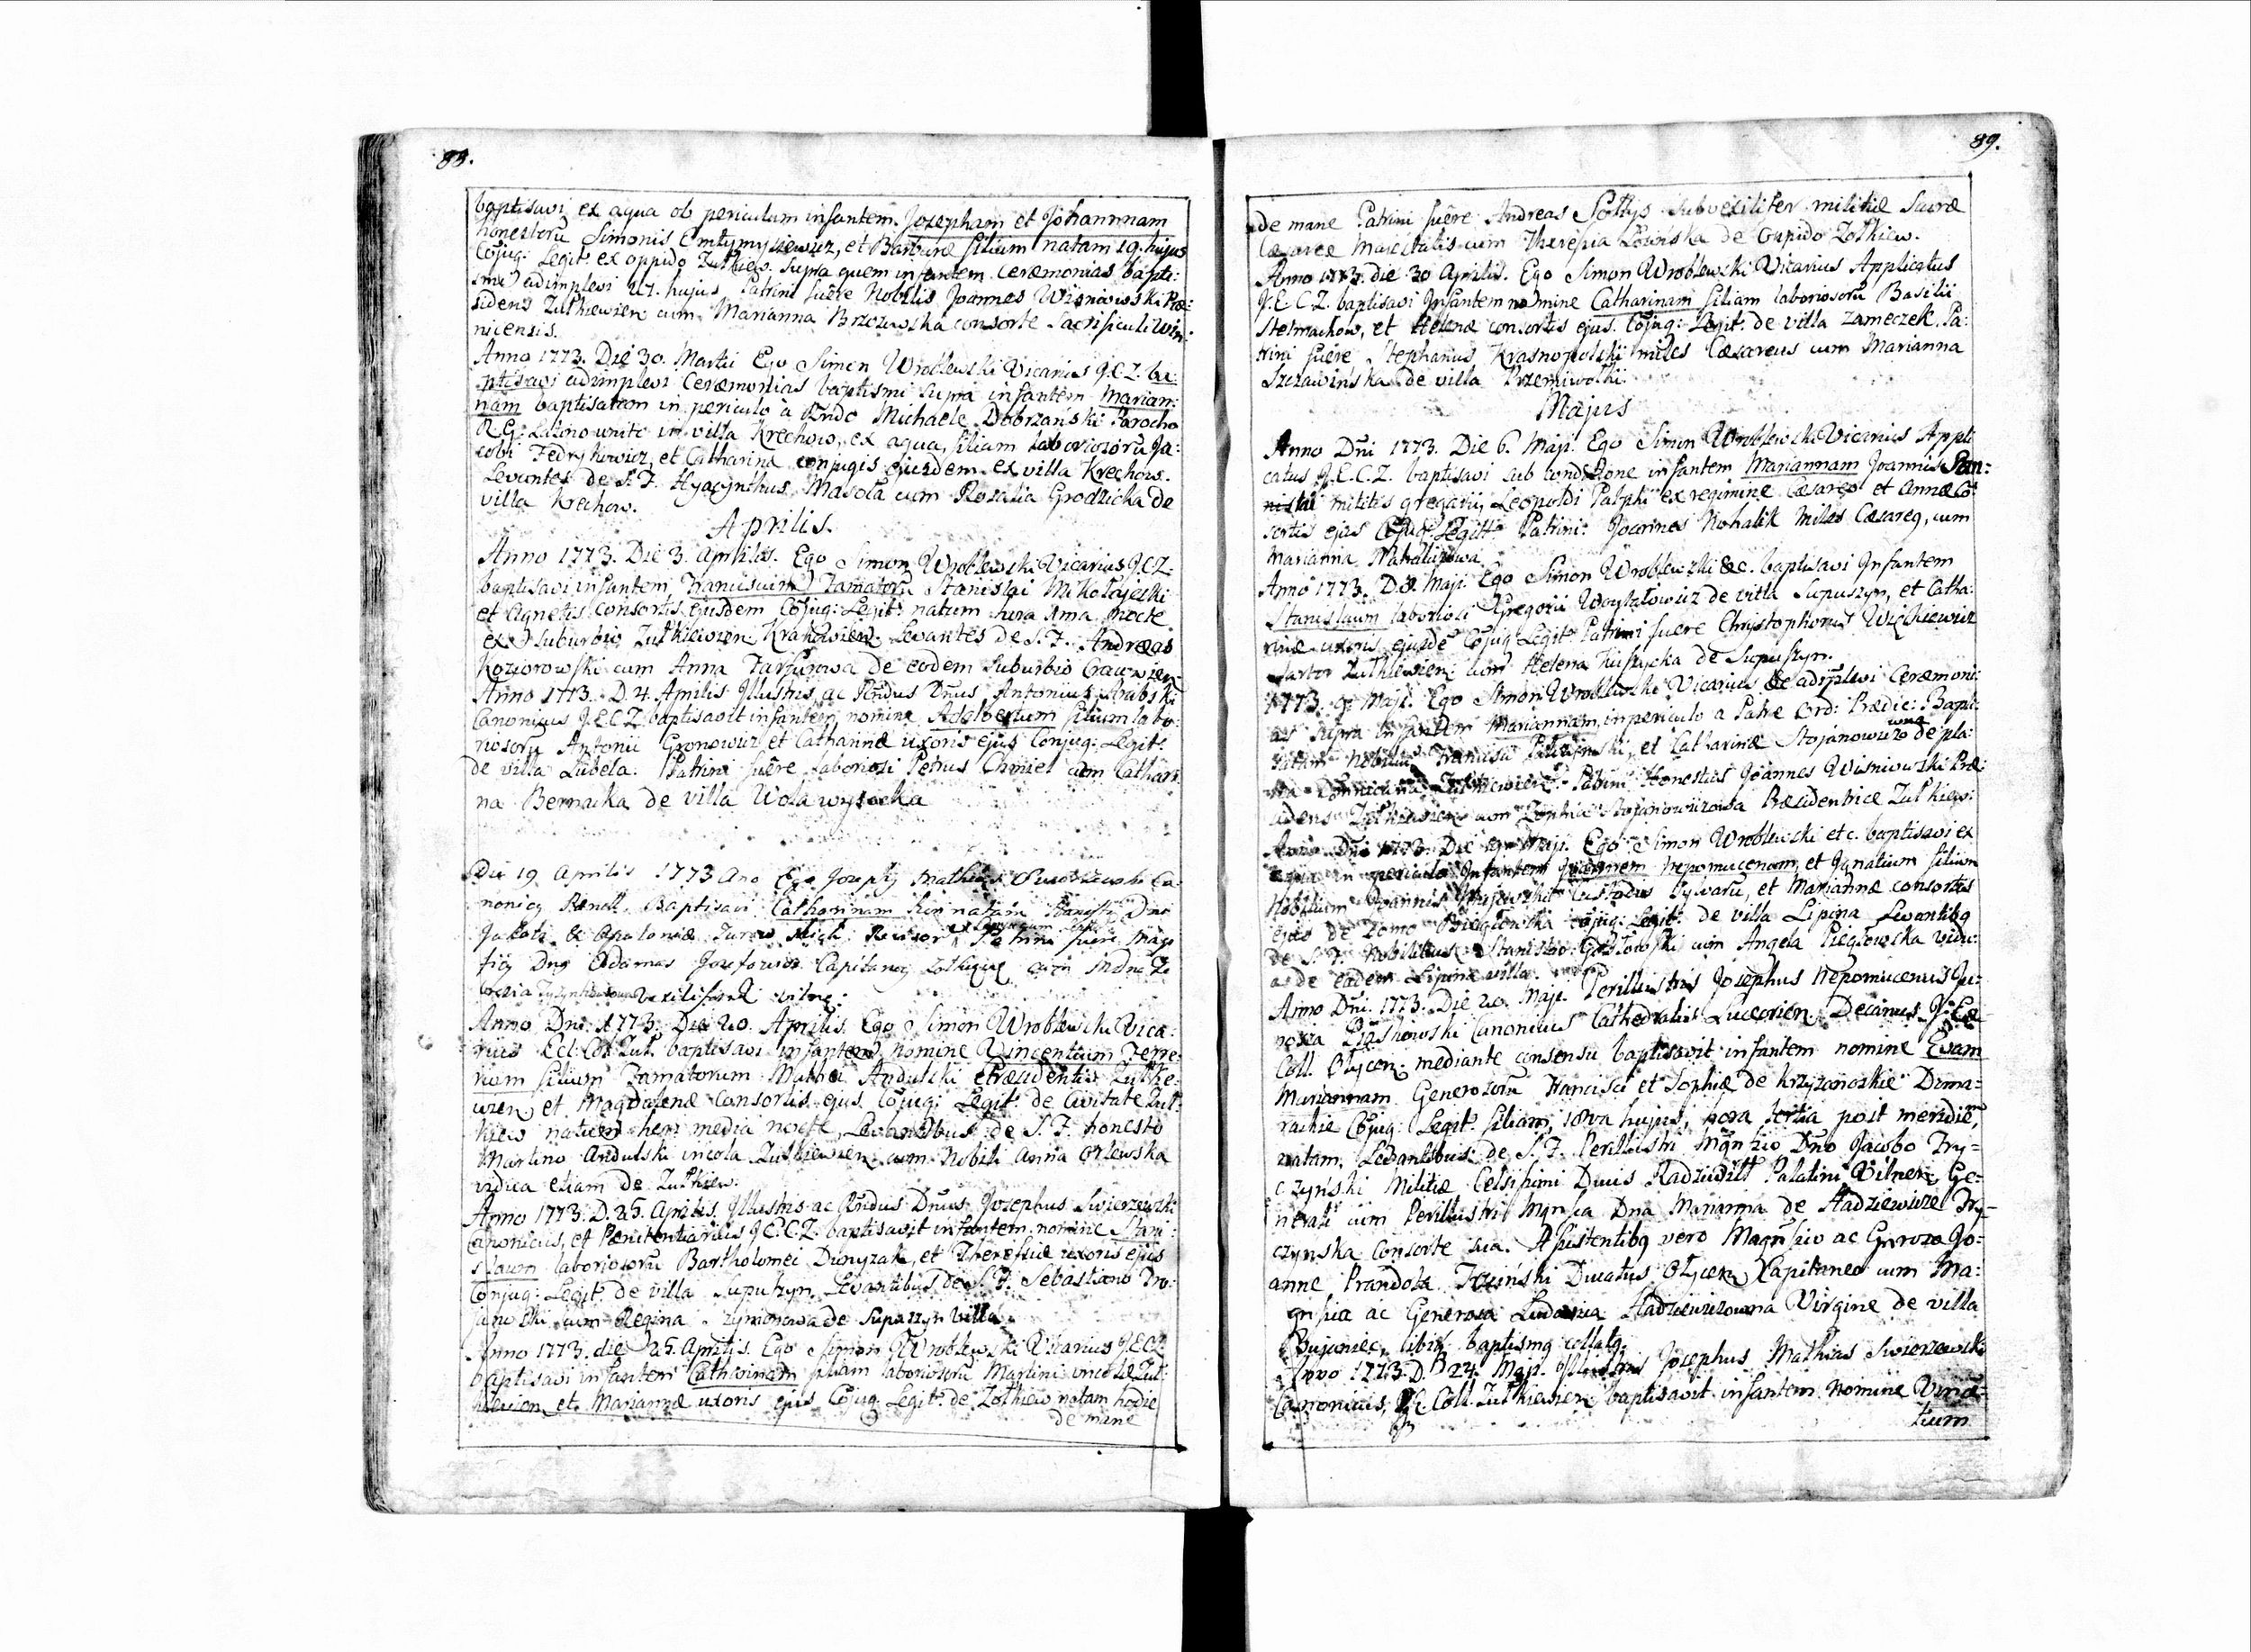 88.
baptisavi ex aqua ob periculum infantem Josepham et Johannnam
honestorũ Simonis et Barbaræ filium natam 19. hujus
Cõjug: Legit: ex oppido Zułkiew. Supra quem infantem ceræmonias bapti:
smi adimplevi 27. hujus Patrini fuêre Nobilis Joannes Wiśniowski Præ:
sidens Zułkiewien cum Marianna Brzezewska consorte Sacrificuli Win:
nicensis.
Anno 1773. Die 30. Martii Ego Simon Wroblewski Vicarius J.E.Z. ba:
ptisavi adimplevi Ceræmonias baptismi supra infantem Marian:
nam baptisatam in periculo à Rndo Michaele Dobrzański Parocho
R.G. Latino unito in villa Krechow, ex aqua, filiam laboriosorũ Ja:
cobi Fedrykowicz, et Catharinæ conjugis ejusdem ex villa Krechow.
Levantes de S.F. Hyacynthus Masoła cum Rosalia Grodzicka de
villa Krechow.
Aprilis.
Anno 1773. Die 3. Aprilis. Ego Simon Wroblewski Vicarius J.E.Z.
baptisavi infantem Franciscum Famatorũ Stanislai Mikołajeski
et Agnetis consortis ejusdem Cõjug: Legit: natum hora 1ma nocte
ex Suburbio Zułkiewien Krakowien. Levantes de S.F. Andreas
Koziorowski cum Anna de eodem Suburbio Cracovien
Anno 1773. D. 4. Aprilis Illustris, ac Rñdus Dnus Antonius Arabski
Canonicus J.E.C.Z. baptisavit infantem nomine Adalbertum filium labo:
riosorũ Antonii Gronowicz et Catharinæ uxoris ejus Conjug: Legit:
de villa Lubela. Patrini fuêre laboriosi Petrus Chmiel cum Cathari:
na Bernacka de villa Wola wysocka
Die 19 Aprilis 1773 Ano Ego Josephg Mathias Swierzewski Ca
nonicg Baptisavi Catharinam heri natam Dni
Jakobi & Apoloniæ Patrini fuere Magn
ficg Dng Adamas Jozefowicz Capitaneg cum
Anno Dni 1773. Die 20. Aprilis. Ego Simon Wroblewski Vica:
rius Ecl: Col: Zuł. baptisavi infantem nomine Vincentium Ferre:
rium filium Famatorum Mathei Andulski Præsidentis Zułkie:
wien, et Magdalenæ Consortis ejus Cõjug: Legit: de Civitate Zuł:
kiew natum heri media nocte, Levantibus de S.F. honesto
Martino Andulski incola Zułkiewien cum Nobili Anna Orlewska
vidua etiam de Zułkiew.
Anno 1773. D. 25. Aprilis. Illustris ac Rñdus Dnus Josephus Swierzewski
Canonicus, et Pænitentiarius J.E.C.Z. baptisavit infantem nomine Stani:
slaum laboriosorũ Bartholomei Dunyzak, et Theresiæ uxoris ejus
Conjug: Legit: de villa Suputzyn. Levantibus de S.F. Sebastiano
cum Regina Szymonowa de Supuszyn villa.
Anno 1773. die 25. Aprilis. Ego Simon Wroblewski Vicarius J.E.C.Z.
baptisavi infantem Catharinam filiam laboriosorũ Martini incolæ Zuł:
kiewien et Mariannæ uxoris ejus Cõjug: Legit: de Zołkiew natam hodie
de mane
89.
de mane Patrini fuêre Andreas Sołtys subvexilifer militiæ Sacræ
Cæsareæ Majestatis cum Theresia Łozinska de Oppido Zołkiew.
Anno 1773. die 30 Aprilis. Ego Simon Wroblewski Vicarius Applicatus
J.E.C.Z. baptisavi Infantem nomine Catharinam filiam laboriosorũ Basilii
Stelmachow, et Helenæ consortis ejus. Cõjug: Legit: de villa Zameczek. Pa:
trini fuêre Stephanus Krasnopolski miles Cæsareus cum Marianna
Szczawińska de villa Przemiwołki.
Majus
Anno Dñi 1773. Die 6. Maji. Ego Simon Wroblewski Vicarius Appli
catus J.E.C.Z. baptisavi sub conditione infantem Mariannam Joannis
militis gregarii, Leopoldi Palphi ex regimine Cæsareo et Annæ Co:
sortis ejus Cõjug: Legitt: Patrini: Joannes Nohalik Miles Cæsareg, cum
Marianna
Anno 1773. D. 8. Maji. Ego Simon Wroblewski &c. baptisavi Infantem
Stanislaum laboriosi Gregorii Woytałowicz de villa Supuszyn, et Catha:
rinæ uxoris ejusdẽ Cõjug: Legit: Patrini fuere Christophorus Wickiewicz
Sartor Zułkiewien: cum Helena de Supuszyn.
1773. 9. Maji. Ego Simon Wroblewski Vicarius &c adimplevi Ceræmoni:
as supra infantem Mariannam, in periculo a Patre Ord: Prædic: Bapti:
satam Nobilis Francisci et Catharinæ Stojanowiczowa de pla:
Zułkiewien. Patrini Honestus Joannes Wisniowski Præ:
sidens Zułkiewien cum Zophia Stojanowiczowa Præsidentrice Zułkiew:
Anno Dñi 1773. Die 19. Maji. Ego Simon Wroblewski etc. baptisavi ex
aqua in periculo Infantem Joannem Nepomucenum, et Ignatium filium
Nobilium Joannis Custodis Sylvarũ, et Mariannæ consortis
ejus de Domo cõjug: Legit: de villa Lipina Levantibg
de S.F. Nobilibus Stanislao cum Angela vidu:
a de eadem Lipina villa.
Anno Dñi. 1773. Die 20. Maji. Perillustris Josephus Nepomucenus Ju:
nosza Piaskowski Canonicus Cathedralis Luceorien Decanus J. Ecæ
Coll. Olycen: mediante consensu baptisavit infantem nomine Evam
Mariannam Generosorũ Francisci et Sophiæ de Krzyzanoskie Dima:
rackie Cõjug: Legit: filiam, 18va hujus, hora tertia post meridiẽ,
natam. Levantibus de S.F. Perillustri Mgnfizio Dño Jacobo Fry:
czyński Militiæ Celsissimi Ducis Radziwiłł Palatini Vilnen: Ge:
nerali cum Perillustri Mgnfica Dna Marianna de Hadziewicze Fry:
czynska Consorte sua. Assistentibg vero Magnfico ac Gnroso Jo:
anne Prandota Ducatus Olycen Capitaneo cum Ma:
gnfica ac Generosa Ludovica Hadziewiczowna Virgine de villa
Bujaniec, libri baptismg collatg.
Anno 1773. D. 24. Maji. Illustris Josephus Mathias Swierzewski
Canonicus, J.E. Coll. Zułkiewien baptisavit infantem nomine Vincen:
tium